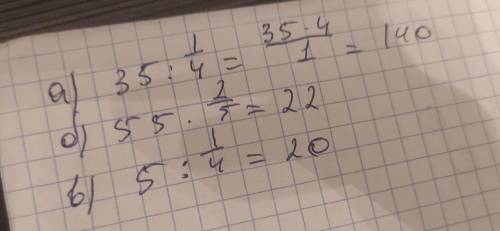 а) 35 : 1/4 = 35 · 4/1 = 140
б) 55 · 2/5 = 22
в) 5 : 1/4 = 20